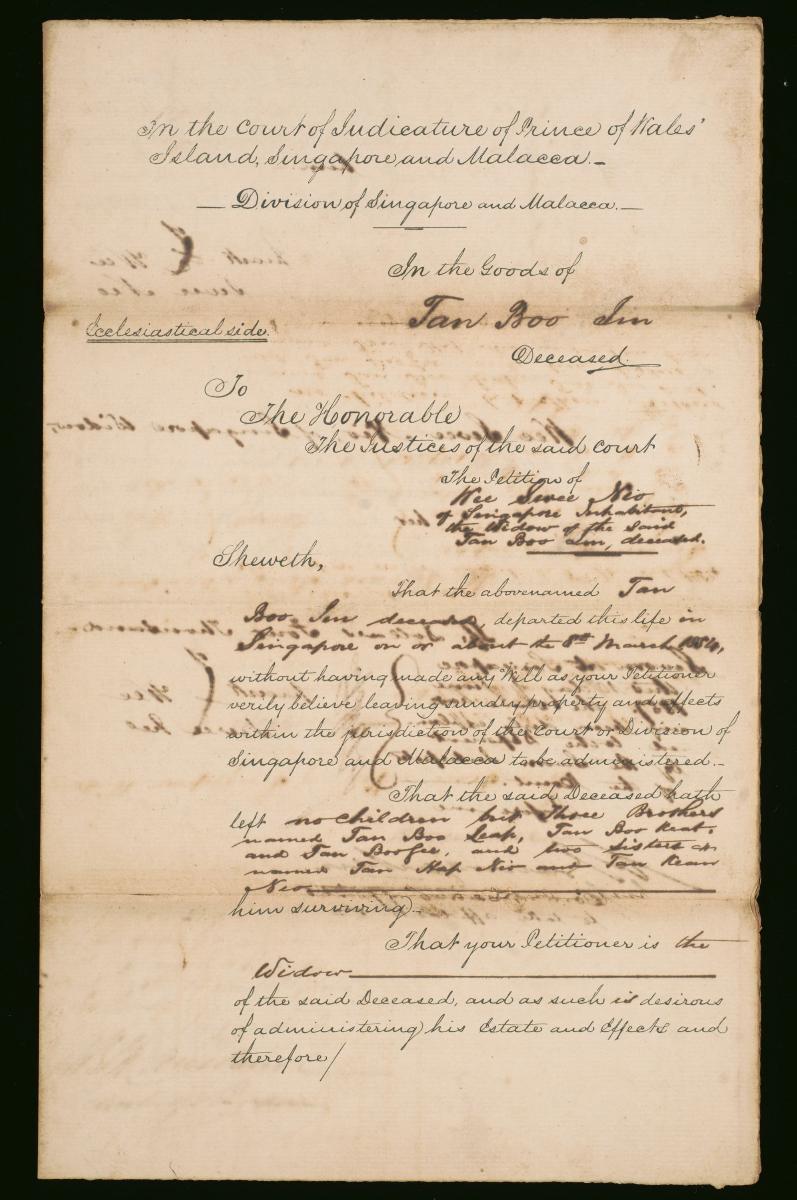 In the Court of Judicature of Prince of Wales'
Island, Singapore and Malacca.-
— Division of Singapore and Malacca.—
In the Goods of
Tan Boo Im
Ecclesiastical side.
Deceased.
To
The Honorable
The Justices of the said Court
The Petition of
Wee Swee Nio
of Singapore Inhabitant,
the Widow of the said
Tan Boo Im, deceased.
Sheweth,
That the abovenamed Tan
Boo Im deceased, departed this life in
Singapore on or about the 8th March 1854,
without having made any Will as your Petitioner
verily believe leaving sundry property and effects
within the jurisdiction of the Court or Division of
Singapore and Malacca to be administered.-
That the said Deceased hath
left no Children but Three Brothers
named Tan Boo Leap, Tan Boo Keat,
and Tan Boo Gee, and two sisters
named Tan Hap Nio and Tan Kean
Nio
him surviving.-
That your Petitioner is the
Widow
of the said Deceased, and as such is desirous
of administering his Estate and Effects and
therefore/